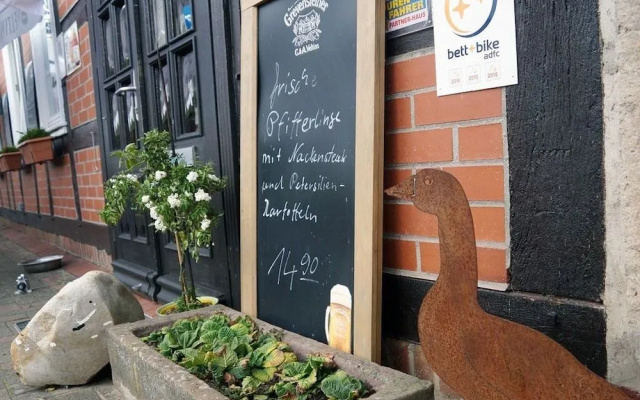 Grevensteiner
C.&A. Veltins
frische
Pfifferlinge
mit Nackensteak
und Petersilien-
Kartoffeln
14⁹⁰
FAHRER
PARTNER-HAUS
bett+bike
adfc